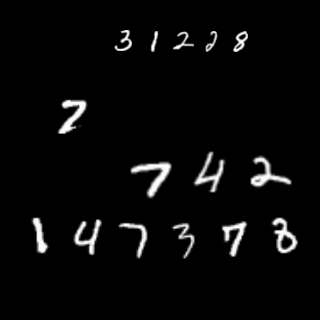 31228
7
742
147378